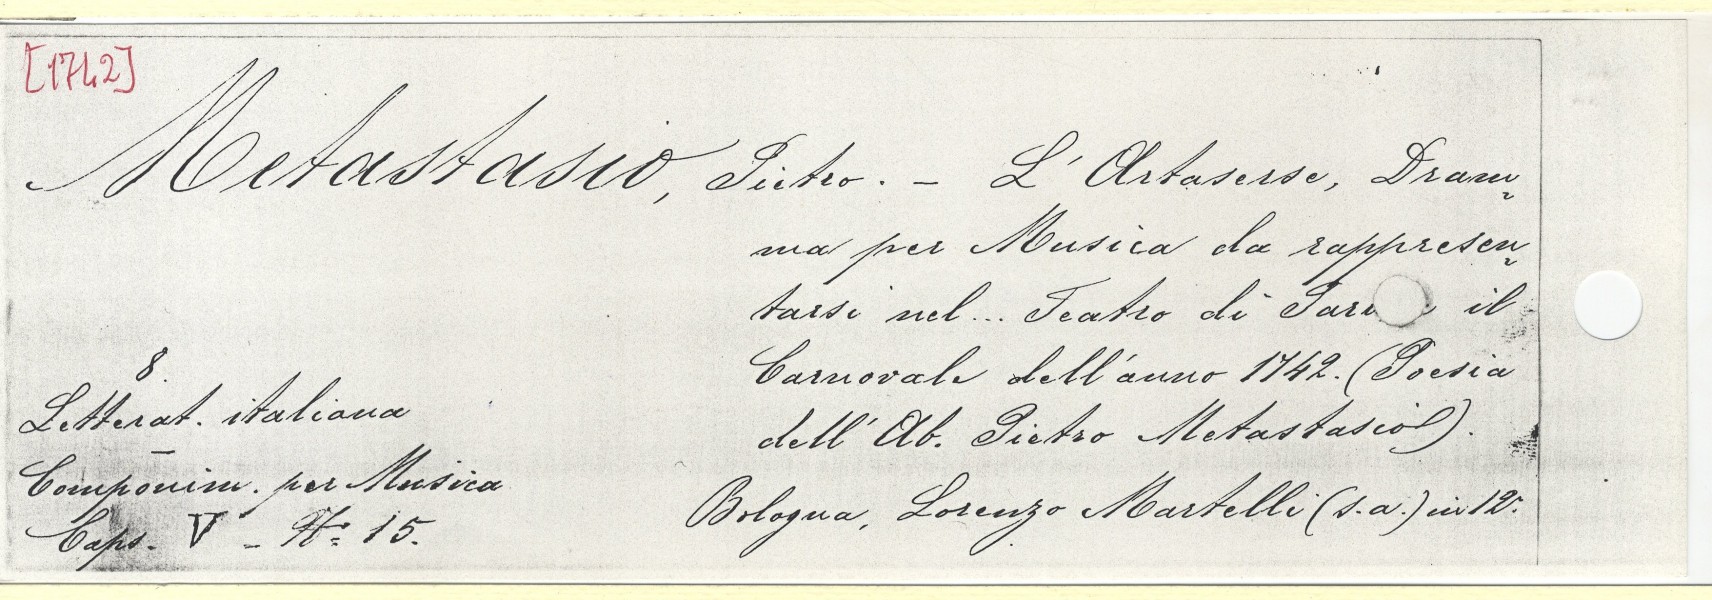 [1742]
Metastasio, Pietro. - L'Artaserse, Dram-
ma per Musica da rappresen-
tarsi nel... Teatro di il
Carnovale dell'anno 1742. (Poesia
dell'Ab. Pietro Metastasio).
Bologna, Lorenzo Martelli (s.a.) in 12º.
8.
Letterat. italiana
Componim. per Musica
Caps. V - Nº 15.